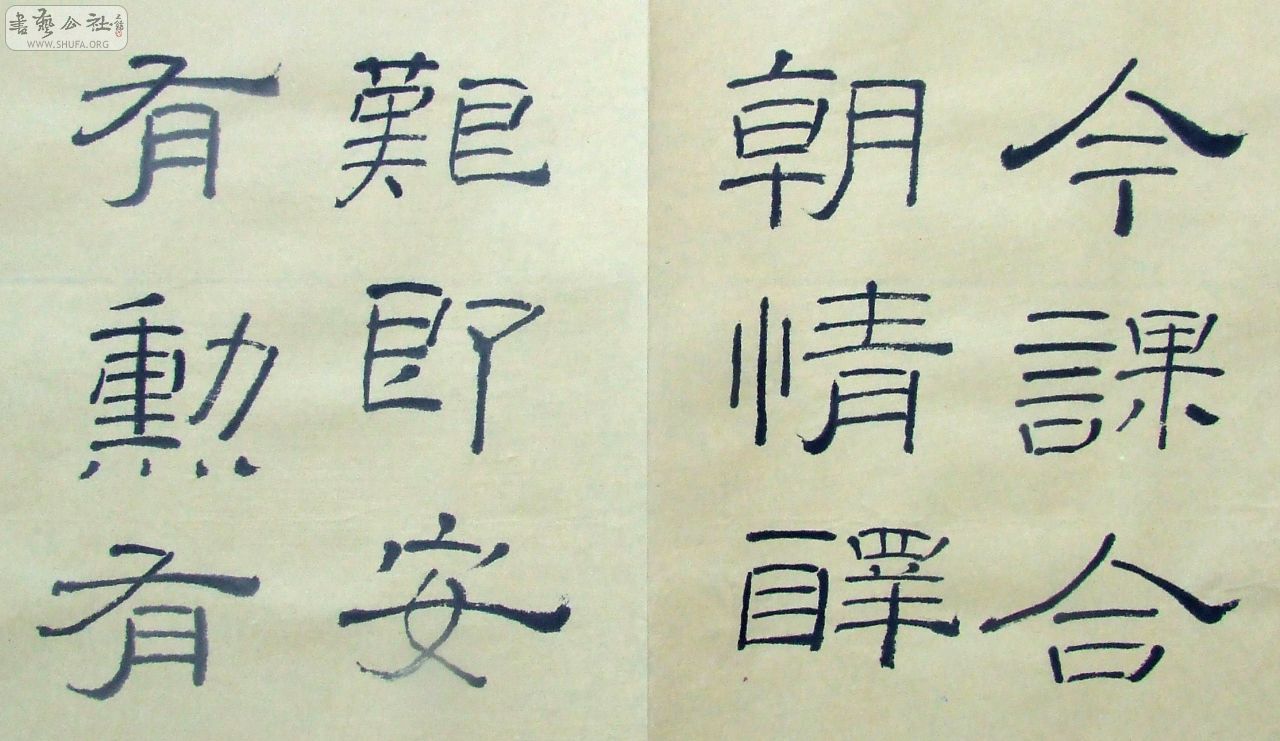 書藝公社
WWW.SHUFA.ORG
今謀合
朝情醳
艱即安
有勳有